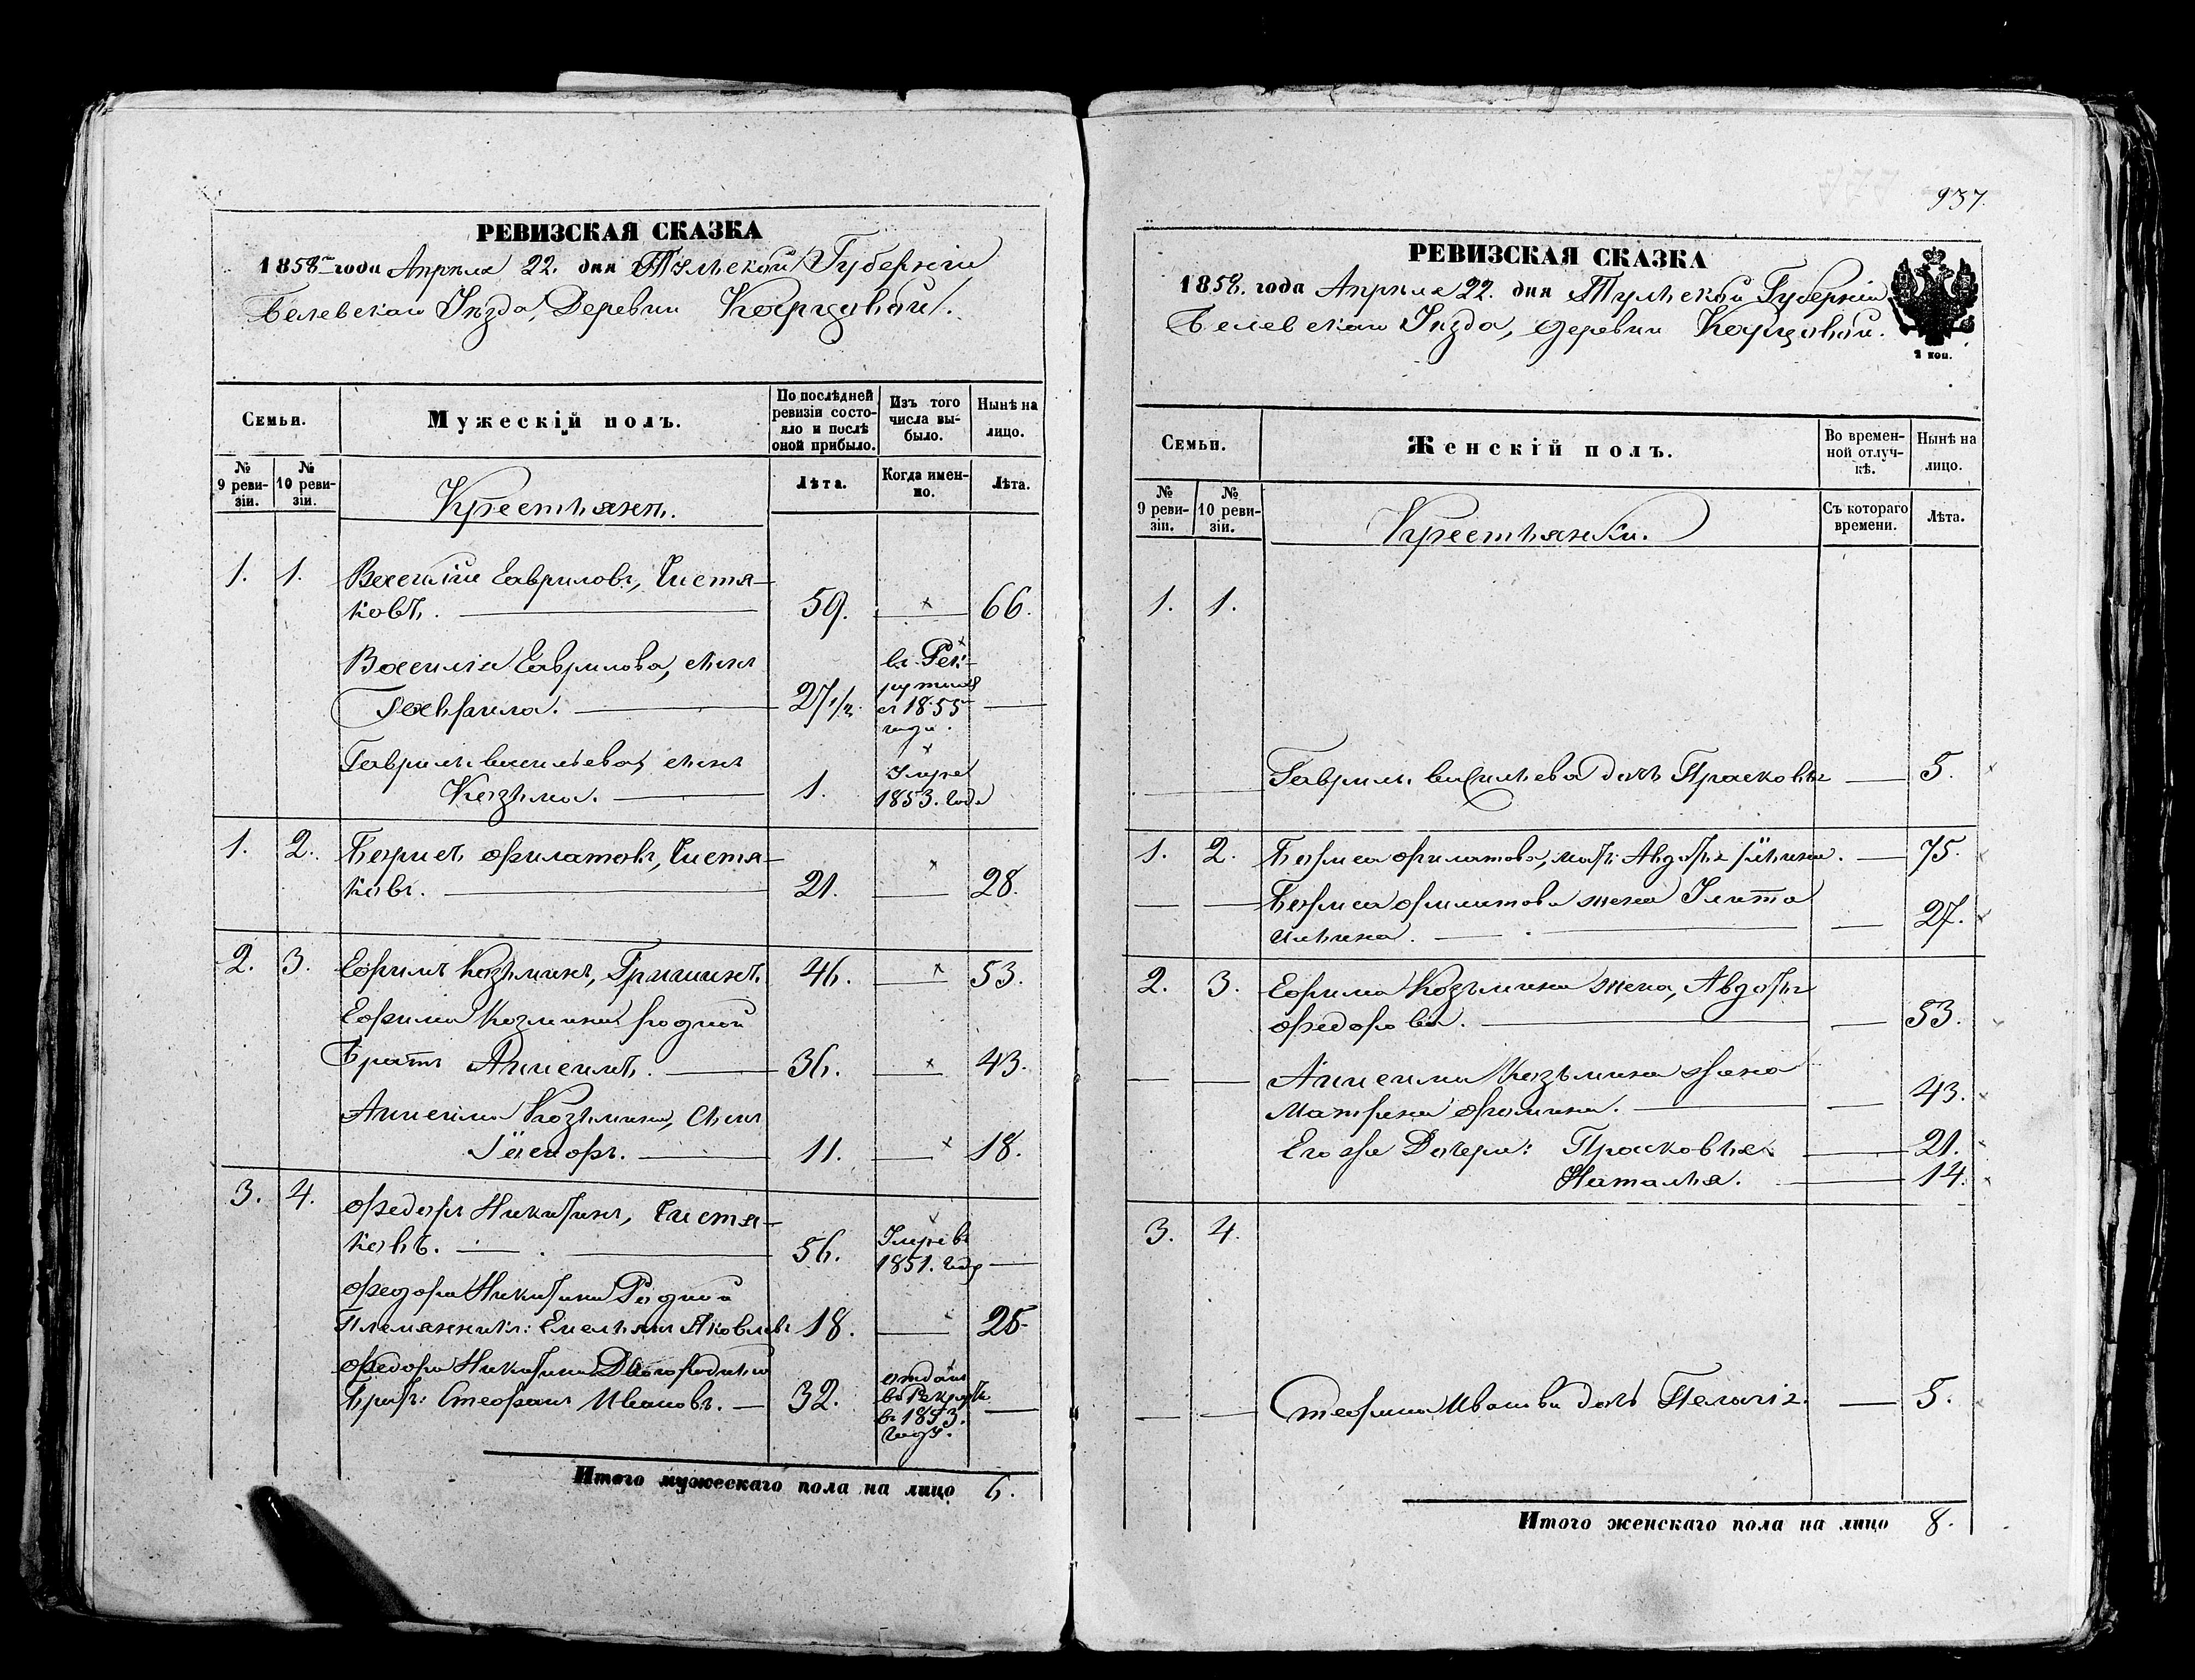 РЕВИЗСКАЯ СКАЗКА
1858 года Апреля 22. дня Тульской Губерніи
Белевскаго Уѣзда, Деревни
Семьи.
Мужескій полъ.
По послѣдней ревизіи состояло и послѣ оной прибыло.
Изъ того числа выбыло.
Ныне на лицо.
№ 9 ревизіи.
№ 10 ревизіи.
Крестьяне.
Лѣта.
Когда именно.
Лѣта.
1. 1. Василій Гавриловъ, Чистя-
ковъ. 59. 66.
Василія Гаврилова, сынъ
Гаврила. 27 1/2. въ Рек-
рутахъ
съ 1855
года.
Гаврилы Васильева, сынъ
Козьма. 1. Умре
1853. года
1. 2. Борисъ Филатовъ, Чистя-
ковъ. 21. 28.
2. 3. Ефимъ Козьминъ, Гришинъ. 46. 53.
Ефима Козмина родной
Братъ Анисимъ. 36. 43.
Анисима Козьмина, Сынъ
11. 18.
3. 4. Федоръ Никитинъ, Чистя-
ковъ. 56. Умре въ
1851. году
Федора Никитина Родной
Племянникъ: Емельянъ Яковлевъ 18. 25
Федора Никитина Двоюродный
Братъ: Стефанъ Ивановъ. 32. отданъ
въ Рекруты
въ 1853.
году.
Итого мужескаго пола на лицо 6.
937.
РЕВИЗСКАЯ СКАЗКА
1858. года Апреля 22. дня Тульской Губерніи
Белевскаго Уѣзда, деревни
2 коп.
Семьи.
Женскій полъ.
Во временной отлучкѣ.
Нынѣ на лицо.
№ 9 ревизіи.
№ 10 ревизіи.
Крестьянки.
Съ котораго времени.
Лѣта.
1. 1.
Гаврилы Васильева дочь Прасковья 5.
1. 2. Бориса Филатова, мать Авдотья Ильина. 75.
Бориса Филатова жена Улита
Ильина. 27.
2. 3. Ефима Козьмина жена, Авдотья
Федорова. 53.
Анисима Козьмина жена
Матрена Фомина. 43.
Его же Дочери: Прасковья 21.
Наталья. 14.
3. 4.
Стефана Иванова дочь Пелагія. 5.
Итого женскаго пола на лицо 8.